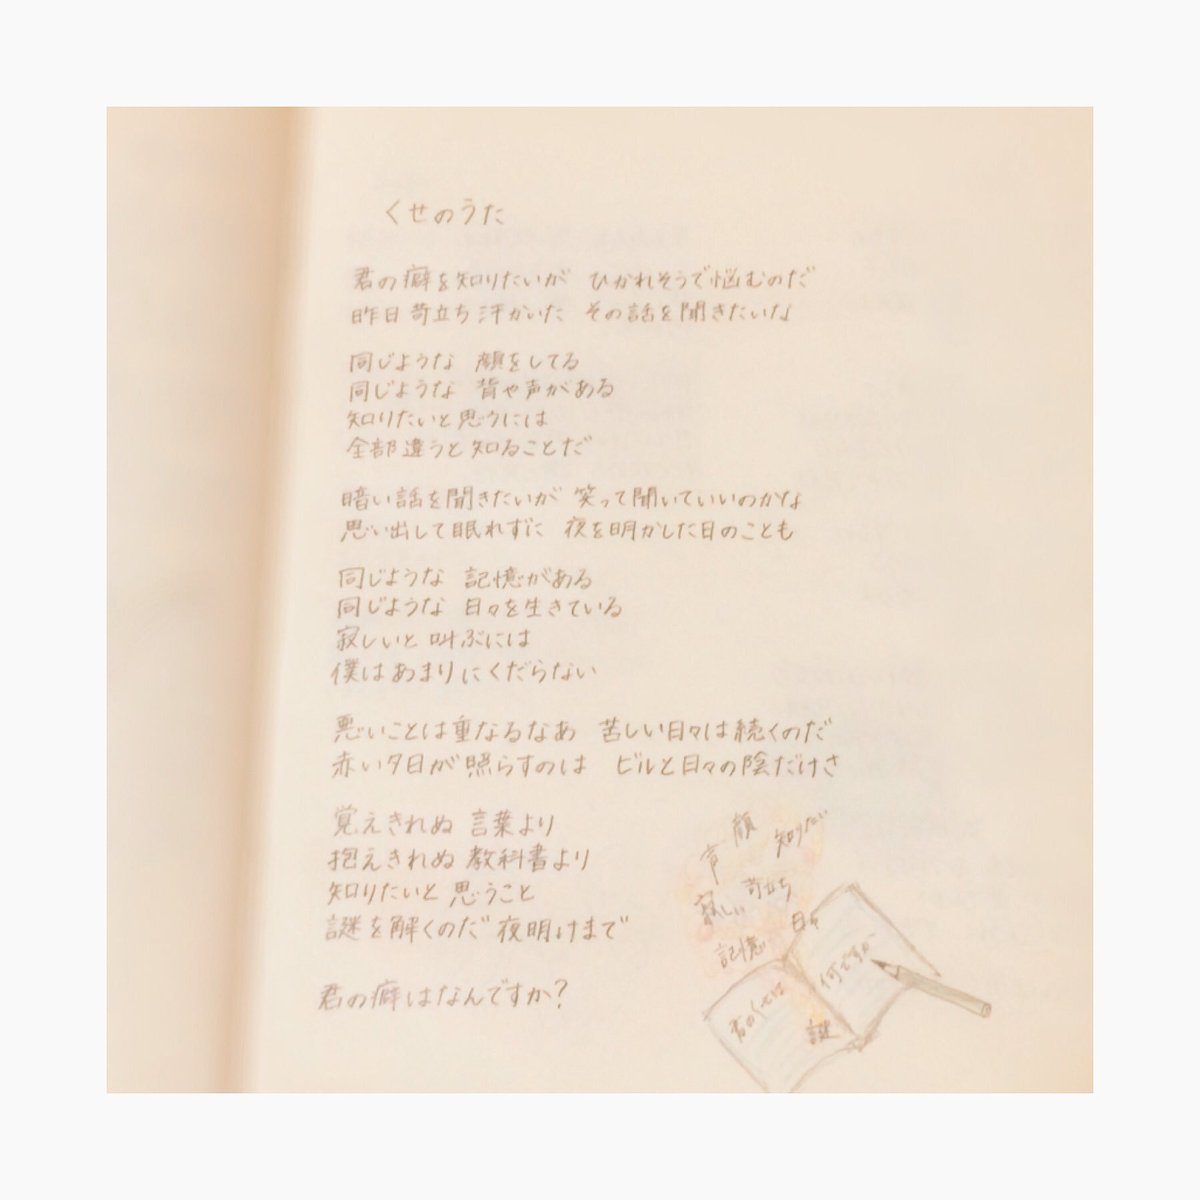 くせのうた
君の癖を知りたいが ひかれそうで悩むのだ
昨日苛立ち汗かいた その話を聞きたいな
同じような 顔をしてる
同じような 背や声がある
知りたいと思うには
全部違うと知ることだ
暗い話を聞きたいが 笑って聞いていいのかな
思い出して眠れずに 夜を明かした日のことも
同じような 記憶がある
同じような 日々を生きている
寂しいと叫ぶには
僕はあまりにくだらない
悪いことは重なるなあ 苦しい日々は続くのだ
赤い夕日が照らすのは ビルと日々の陰だけさ
覚えきれぬ 言葉より
抱えきれぬ 教科書より
知りたいと 思うこと
謎を解くのだ 夜明けまで
君の癖はなんですか?
顔
知りたい
声
苛立ち
寂しい
日々
記憶
君のくせは
何ですか
謎